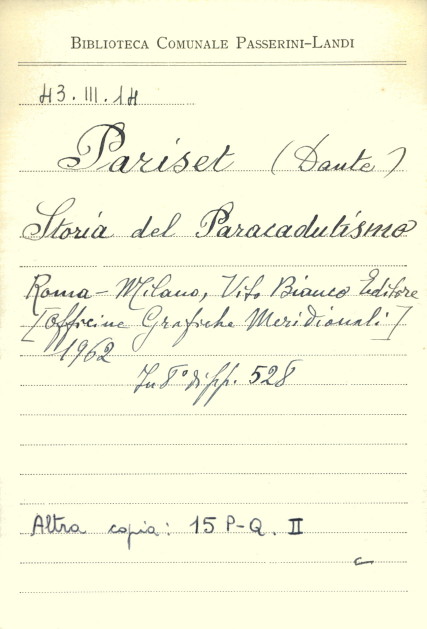 BIBLIOTECA COMUNALE PASSERINI-LANDI
43.III.14
Pariset (Dante)
Storia del Paracadutismo
Roma - Milano, Vito Bianco Editore
[Officine Grafiche Meridionali]
1962
In 8° di pp. 528
Altra copia: 15 P-Q. II
c